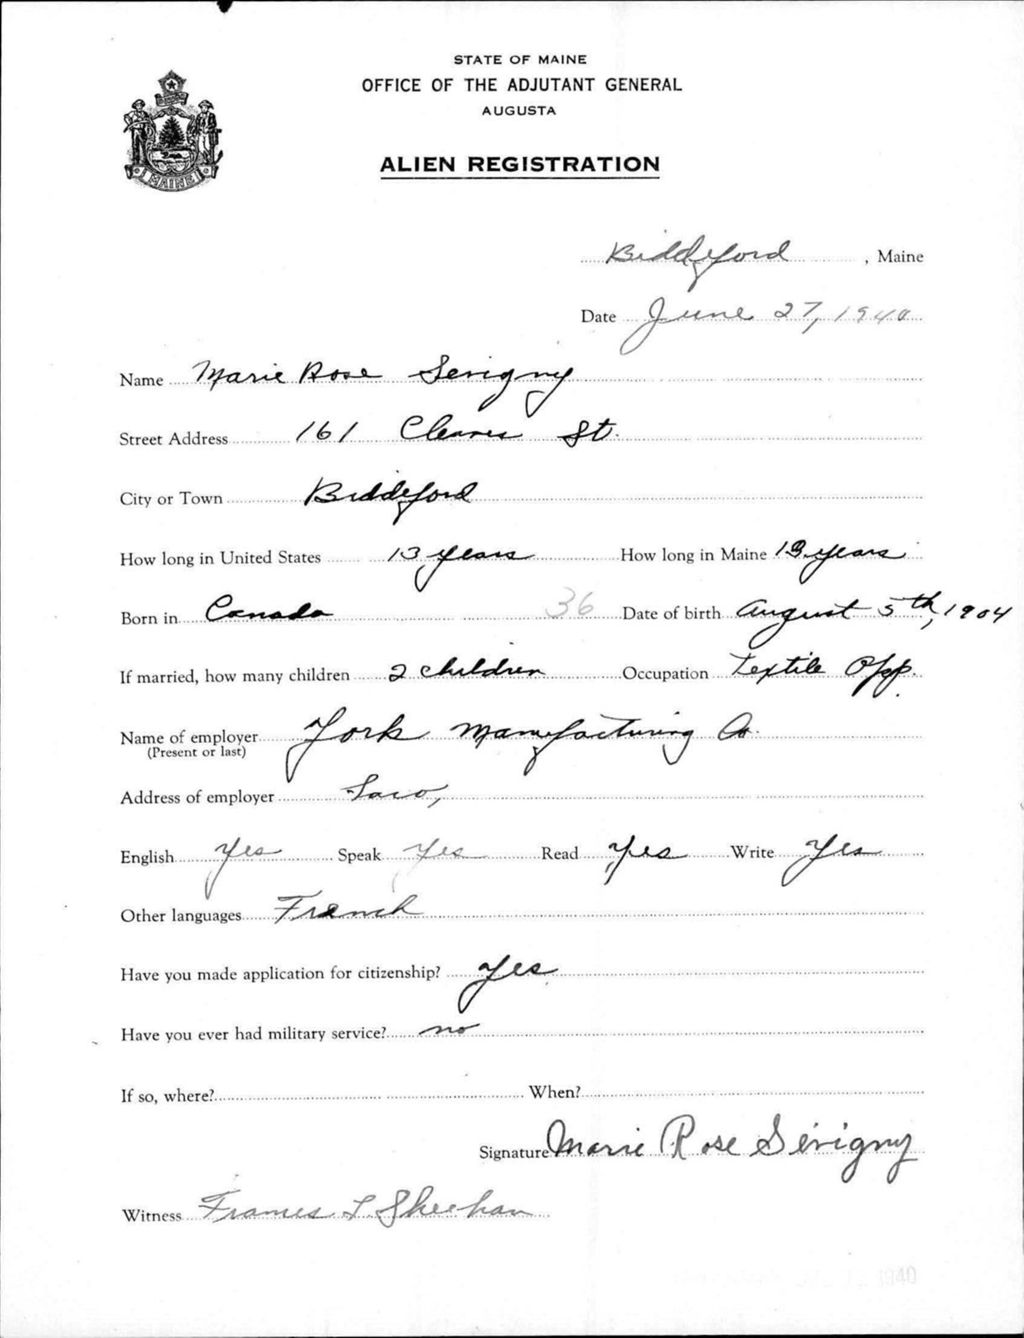 STATE OF MAINE
OFFICE OF THE ADJUTANT GENERAL
AUGUSTA
ALIEN REGISTRATION
MAINE
Biddeford, Maine
Date June 27, 1940
Name Marie Rose Sevigny
Street Address 161 Cleaves St.
City or Town Biddeford
How long in United States 13 years How long in Maine 13 years
Born in Canada 36 Date of birth August 5th, 1904
If married, how many children 2 children Occupation Textile Opp.
Name of employer York Manufacturing Co.
(Present or last)
Address of employer Saco,
English Yes Speak Yes Read Yes Write Yes
Other languages French
Have you made application for citizenship? Yes
Have you ever had military service? no
If so, where? When?
Signature Marie Rose Sévigny
Witness Frances L Sheehan
1940